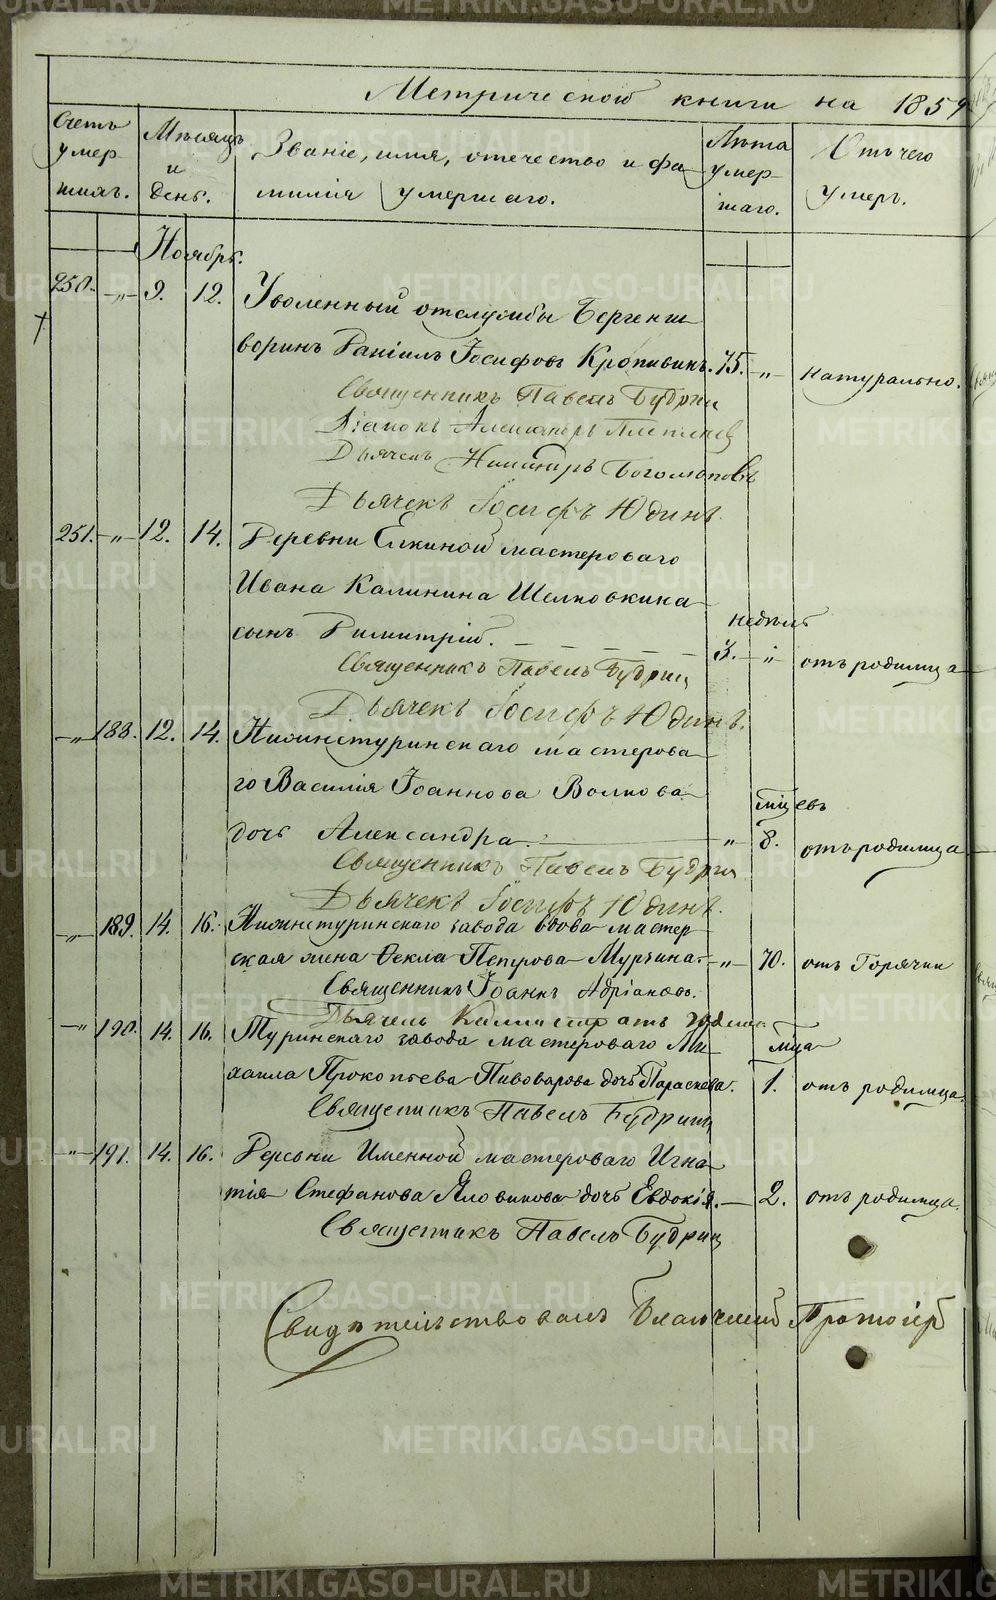 Метрической книги на 1859
Счетъ умершихъ.
Мѣсяцъ и день.
Званіе, имя, отечество и фамилія умершаго.
Лѣта умершаго.
Отъ чего умеръ.
Ноябрь.
250. —„— 9. 12. Уволенный отслужбы Бергеншворинъ Даніилъ Іосифовъ Кропивинъ. 75. —„— натурально.
Священникъ Павелъ Будрин
Діаконъ Александръ
Дьячекъ Никандръ Богомоловъ
Дьячекъ Іосифъ Юдинъ.
251. —„— 12. 14. Деревни Елкиной мастероваго
Ивана Калинина Шелковкина недѣль
сынъ Димитрій. — — — — — 3. —„— отъ родимца
Священникъ Павелъ Будрин
Дьячекъ Іосифъ Юдинъ.
—„— 188. 12. 14. Нижнетуринскаго мастерова-
го Василія Іоаннова Волкова мцевъ
дочь Александра. — „ 8. отъ родимца
Священникъ Павелъ Будрин
Дьячекъ Іосифъ Юдинъ.
—„— 189. 14. 16. Нижнетуринскаго завода вдова мастер-
ская жена Фекла Петрова Мурзина. —„— 70. отъ Горячки
Священникъ Іоаннъ Адріановъ.
Дьячекъ Каллистратъ
—„— 190. 14. 16. Туринскаго завода мастероваго Ми- мца
хаила Прокопьева Пивоварова дочь Параскева. 1. отъ родимца.
Священникъ Павелъ Будрин
—„— 191. 14. 16. Деревни Именной мастероваго Игна-
тія Стефанова Яловикова дочь Евдокія. — 2. отъ родимца.
Священникъ Павелъ Будрин
Свидѣтельствовалъ Благочинный Протоіер
METRIKI.GASO-URAL.RU